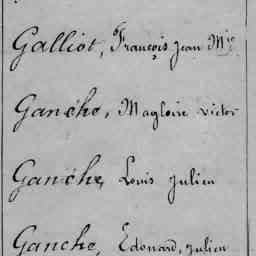 Galliot, François Jean Mie
Ganche, Magloire Victor
Ganche, Louis Julien
Ganche, Edouard, Julien